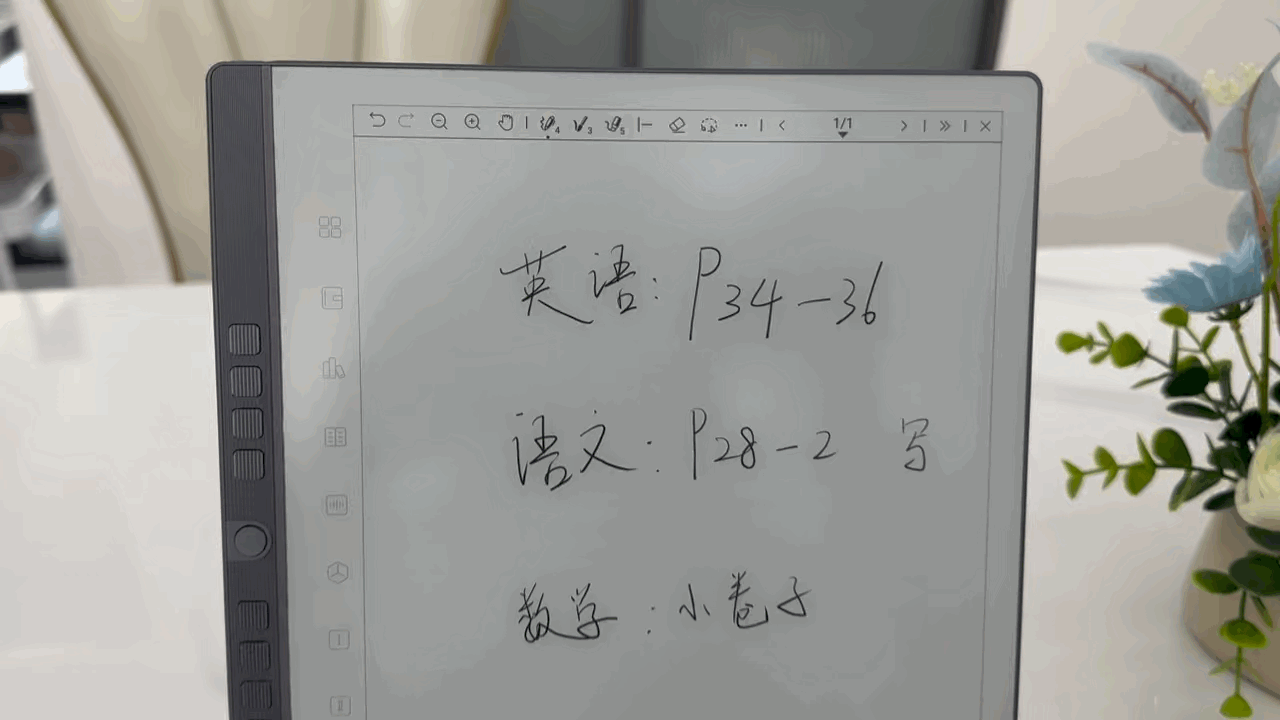 1/1
英语: P34-36
语文: P28-2 写
数学: 小卷子